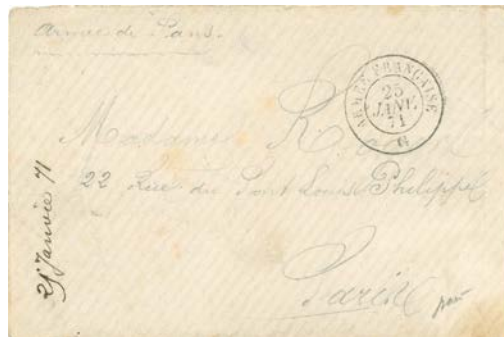 Armée de Paris.
ARMÉE FRANÇAISE
25
JANV.
71
Madame R
22 Rue du Pont Louis Philippe
Paris
25 Janvie 71